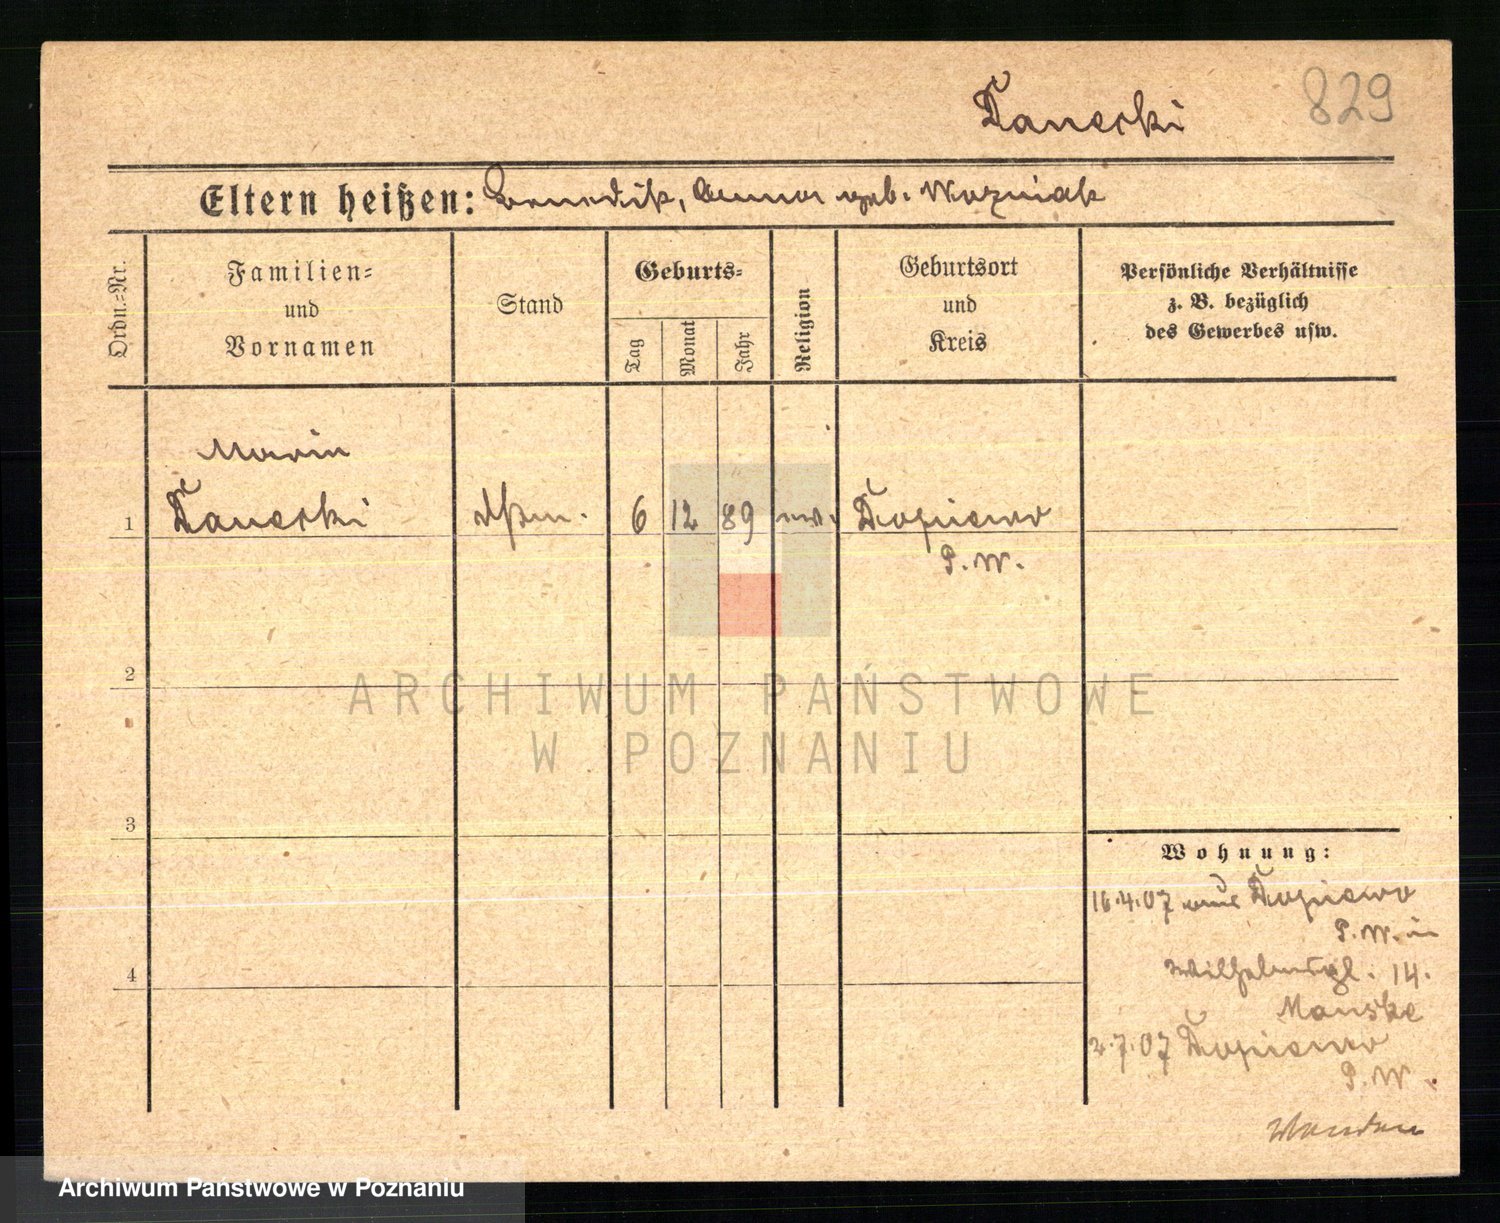 Tanecki 829
Eltern heißen: Benedikt, Anna geb. Wozniak
Ordn.-Nr.
Familien-
und
Vornamen
Stand
Geburts-
Tag
Monat
Jahr
Religion
Geburtsort
und
Kreis
Persönliche Verhältnisse
z. B. bezüglich
des Gewerbes usw.
Marie
1 Tanecki 6 12 89
P. W.
2
3
4
Wohnung:
16.4.07 aus
P. W. in
Wilhelmspl. 14.
Manske
2.7.07
P. W.
Wenden
ARCHIWUM PAŃSTWOWE
W POZNANIU
Archiwum Państwowe w Poznaniu